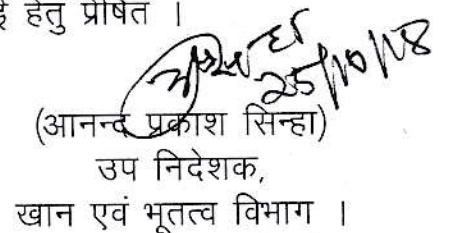 ई हेतु प्रेषित ।
25/10/18
(आनन्द प्रकाश सिन्हा)
उप निदेशक,
खान एवं भूतत्व विभाग ।